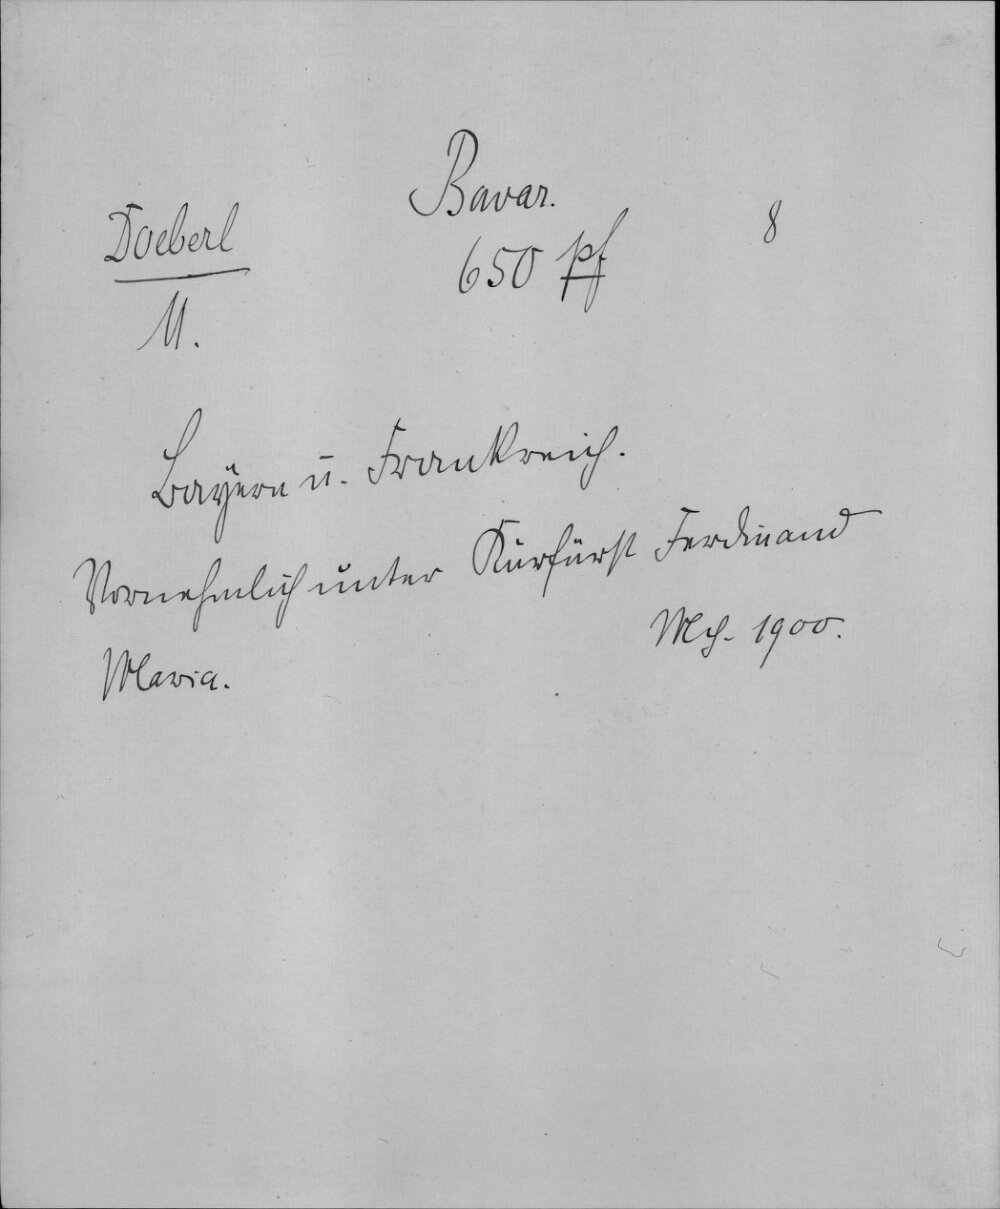 Bavar.
Doeberl 650 pf 8
M.
Bayern u. Frankreich.
Vornehmlich unter Kurfürst Ferdinand
Maria. Mch. 1900.